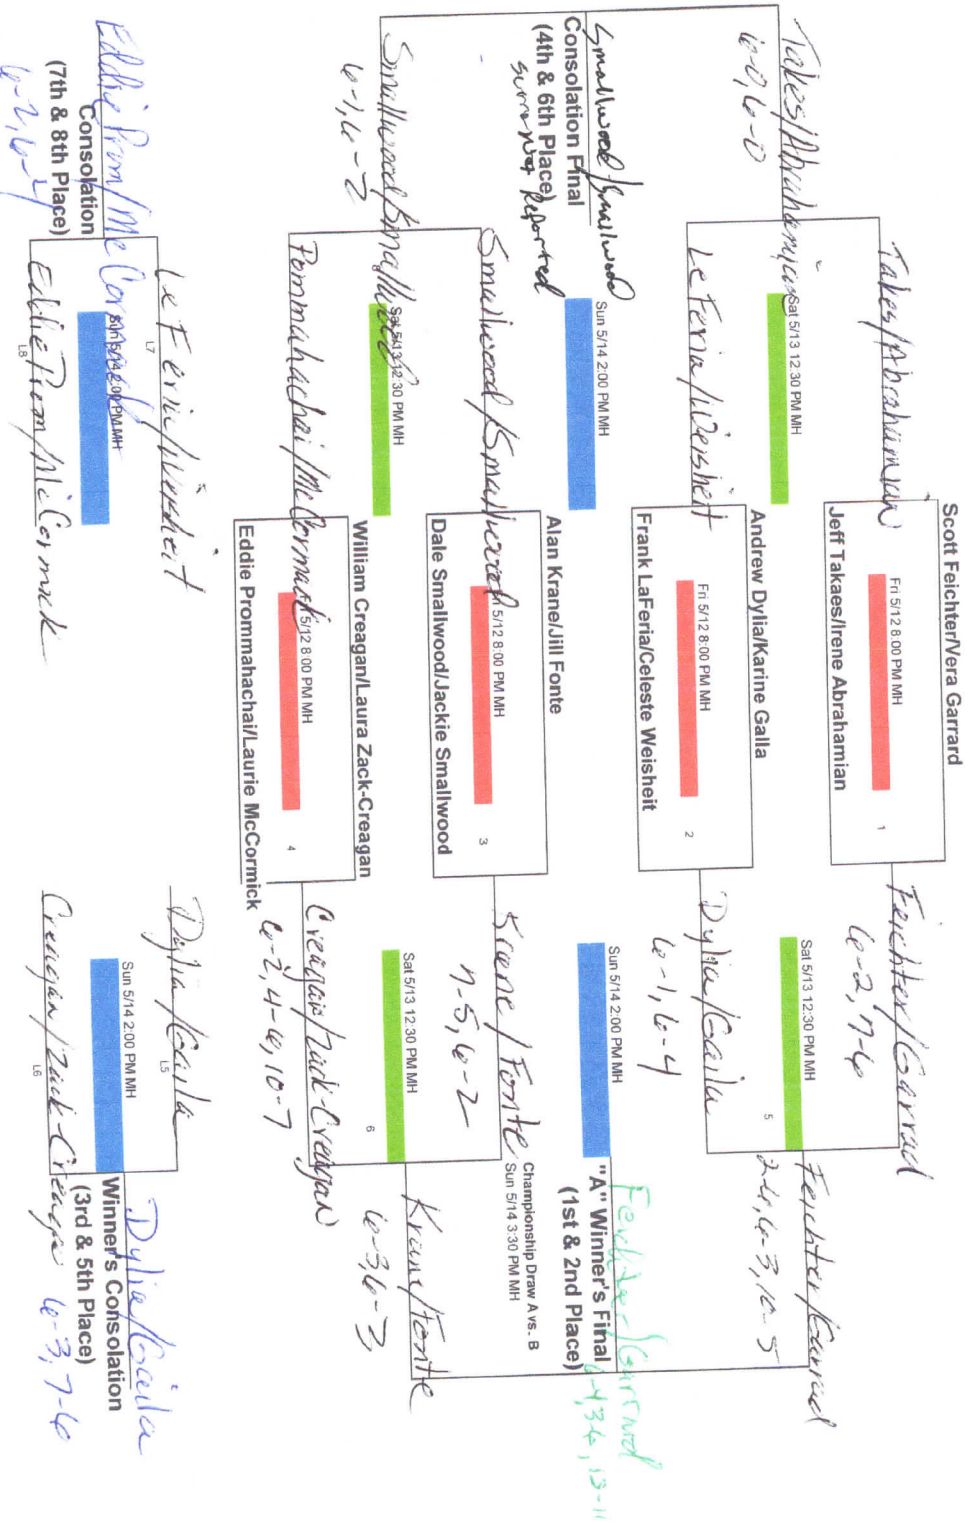 Scott Feichter/Vera Garrard
Fri 5/12 8:00 PM MH
1
Jeff Takaes/Irene Abrahamian
Andrew Dylia/Karine Galla
Fri 5/12 8:00 PM MH
2
Frank LaFeria/Celeste Weisheit
Alan Krane/Jill Fonte
5/12 8:00 PM MH
3
Dale Smallwood/Jackie Smallwood
William Creagan/Laura Zack-Creagan
5/12 8:00 PM MH
4
Eddie Prommahachai/Laurie McCormick
Feichter/Garrad
6-2, 7-6
Sat 5/13 12:30 PM MH
5
Dylia/Gaila
6-1, 6-4
Krane/Fonte
7-5, 6-2
Sat 5/13 12:30 PM MH
6
Creagan/Zack-Creagan
6-2, 4-6, 10-7
Feichter/Garrad
2-6, 6-3, 10-5
Sun 5/14 2:00 PM MH
"A" Winner's Final
(1st & 2nd Place)
Championship Draw A vs. B
Sun 5/14 3:30 PM MH
Krane/Fonte
6-3, 6-3
Feichter/Garrard
6-4, 3-6, 13-11
Dylia/Gaila
L5
Sun 5/14 2:00 PM MH
Creagan/Zack-Creagan
L6
Dylia/Gaila
Winner's Consolation
(3rd & 5th Place)
6-3, 7-6
Takes/Abrahamian
Sat 5/13 12:30 PM MH
LeFeria/Weisheit
Takes/Abrahamian
6-0, 6-0
Smallwood/Smallwood
Sat 5/13 12:30 PM MH
Pommahachai/McCormack
Smallwood/Smallwood
6-1, 6-2
Sun 5/14 2:00 PM MH
Smallwood/Smallwood
Consolation Final
(4th & 6th Place)
score not Reported
Le Feria/Weisheit
L7
Sun 5/14 2:00 PM MH
Eddie Prom/McCormick
L8
Eddie Prom/McCormack
Consolation
(7th & 8th Place)
6-2, 6-4